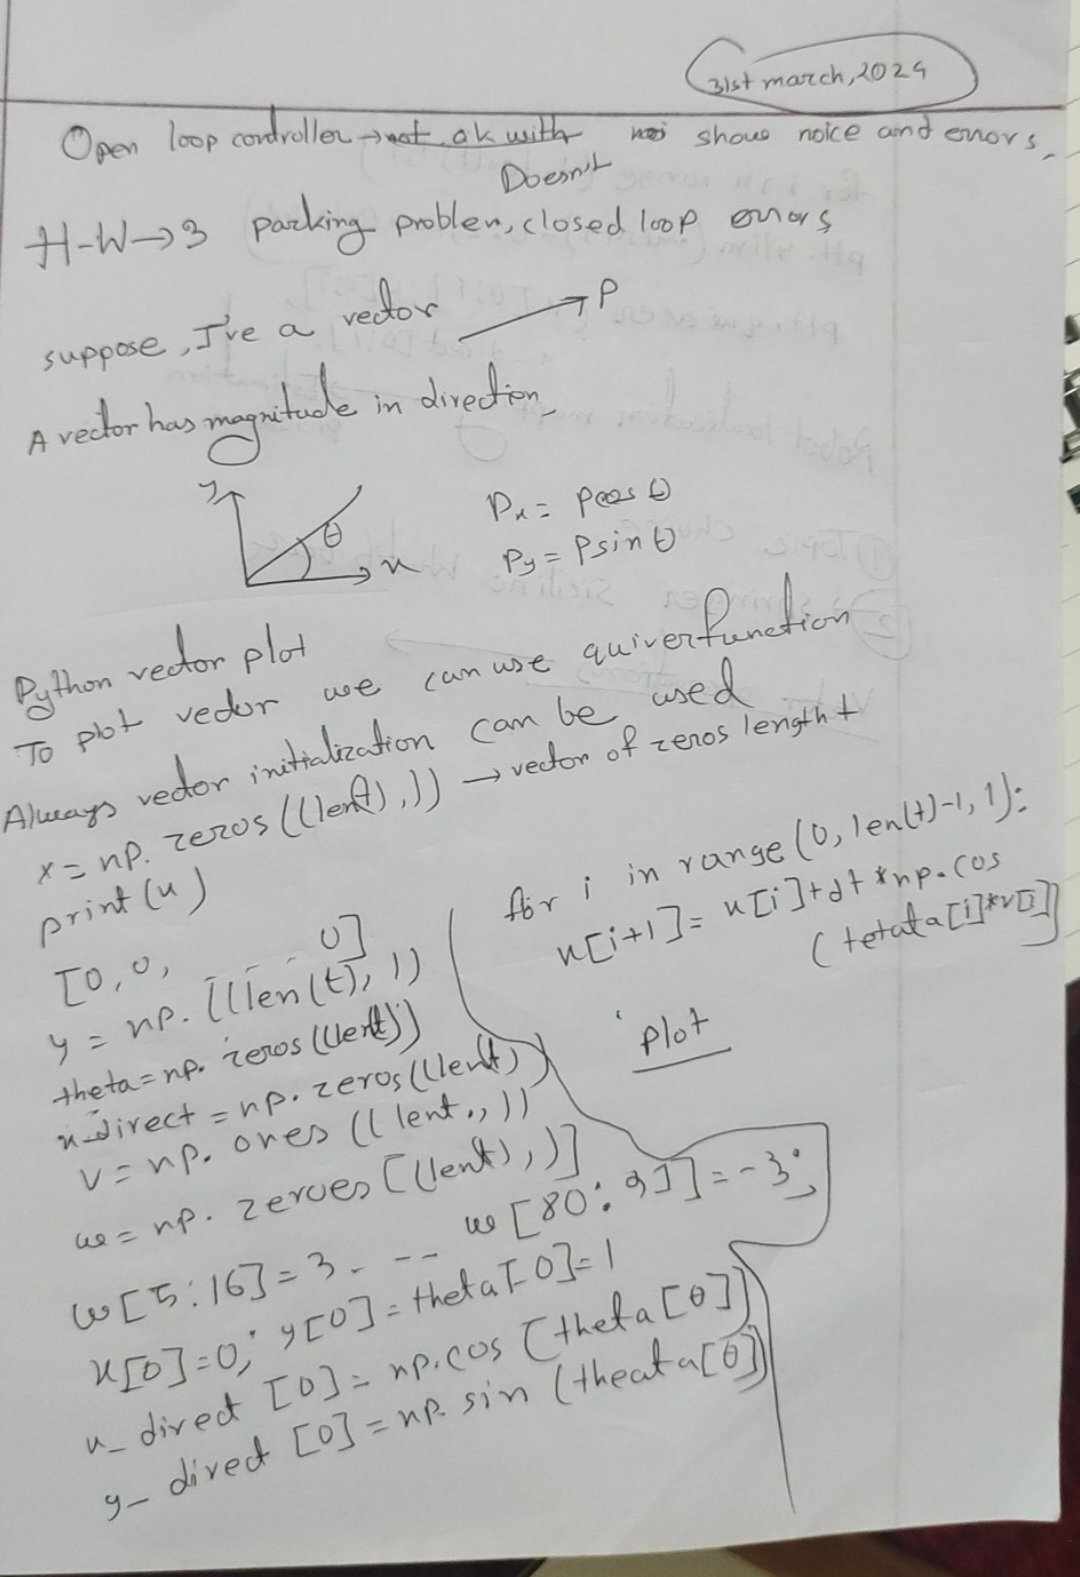 31st march, 2024
Open loop controller → not ok with noi show noice and errors.
Doesn't
H-W→3 parking problem, closed loop errors
suppose, I've a vector P
A vector has magnitude in direction
y
θ
x
Px = Pcos θ
Py = Psin θ
Python vector plot
To plot vector we can use quiver function
Always vector initialization can be used
x = np. zeros ((len(t),)) → vector of zeros length t
print (x)
[0, 0, - - - 0]
y = np. ((len(t), ))
theta = np. zeros ((lent))
x_direct = np. zeros ((lent))
v = np. ones (( lent., ))
w = np. zeroes [(lent),)]
w [5:16] = 3 - -- w [80:91] = -3;
x[0] = 0; y[0] = theta [0] = 1
x_ direct [0] = np.cos (theta [θ])
y_ direct [0] = np. sin (theata [θ])
for i in range (0, len(t)-1, 1):
x[i+1] = x[i]+dt *np.cos
(tetata[i]*v[i])
plot